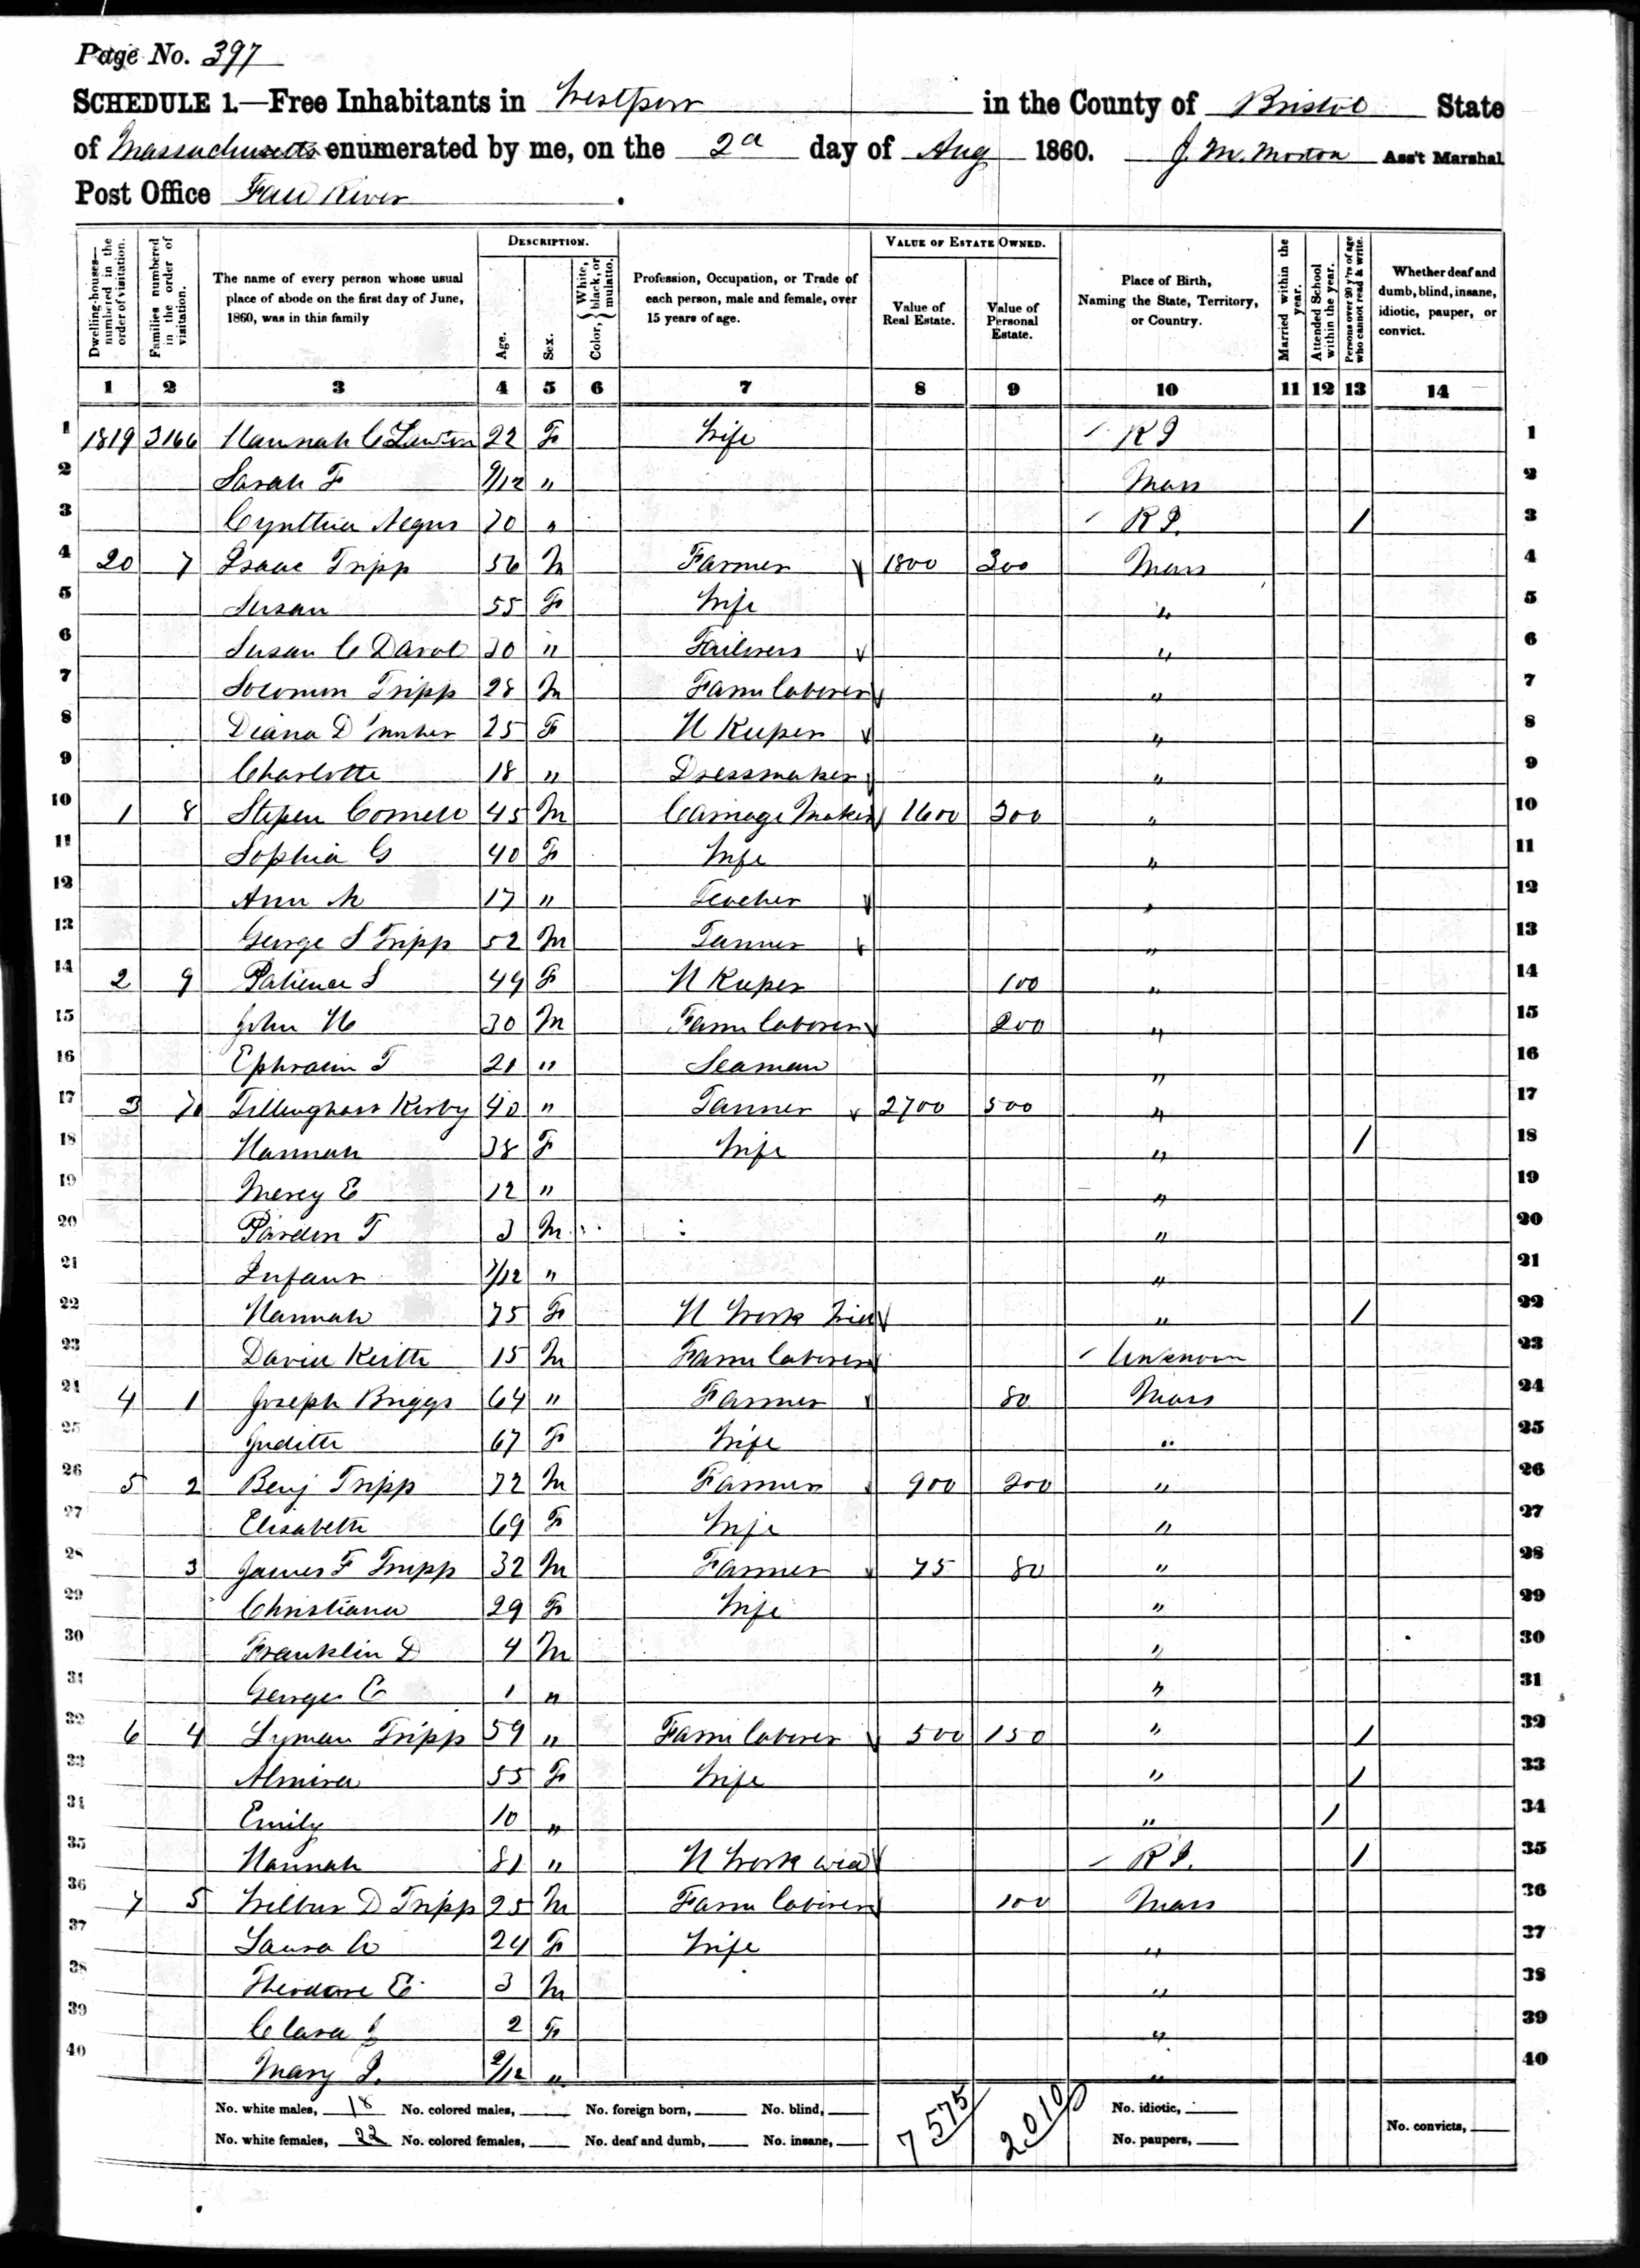 Page No. 397
SCHEDULE 1.—Free Inhabitants in Westport in the County of Bristol State
of Massachusetts enumerated by me, on the 2d day of Aug 1860. J. M. Morton Ass't Marshal
Post Office Fall River.
Dwelling-houses—numbered in the order of visitation.
Families numbered in the order of visitation.
The name of every person whose usual place of abode on the first day of June, 1860, was in this family
DESCRIPTION.
Age.
Sex.
Color, White, black, or mulatto.
Profession, Occupation, or Trade of each person, male and female, over 15 years of age.
VALUE OF ESTATE OWNED.
Value of Real Estate.
Value of Personal Estate.
Place of Birth, Naming the State, Territory, or Country.
Married within the year.
Attended School within the year.
Persons over 20 y'rs of age who cannot read & write.
Whether deaf and dumb, blind, insane, idiotic, pauper, or convict.
1 2 3 4 5 6 7 8 9 10 11 12 13 14
1 1819 3166 Hannah C Lawton 22 F Wife R I 1
2 Sarah F 9/12 " Mass 2
3 Cynthia Negus 70 " R I. / 3
4 20 7 Isaac Tripp 56 M Farmer 1800 300 Mass 4
5 Susan 55 F Wife " 5
6 Susan C Davol 30 " Tailoress " 6
7 Solomon Tripp 28 M Farm laborer " 7
8 Diana D 25 F H Keeper " 8
9 Charlotte 18 " Dressmaker " 9
10 1 8 Stepen Cornell 45 M Carriage Maker 1600 300 " 10
11 Sophia G 40 F Wife " 11
12 Ann M 17 " Teacher " 12
13 George S Tripp 52 M Farmer " 13
14 2 9 Patience S 49 F H Keeper 100 " 14
15 John H 30 M Farm laborer 200 " 15
16 Ephraim T 21 " Seaman " 16
17 3 70 Tillinghast Kirby 40 " Farmer 2700 500 " 17
18 Hannah 38 F Wife " / 18
19 Mercy E 12 " " 19
20 Pardon T 3 M " 20
21 Infant 7/12 " " 21
22 Hannah 75 F H Work Wid " / 22
23 David Keith 15 M Farm laborer Unknown 23
24 4 1 Joseph Briggs 64 " Farmer 80 Mass 24
25 Judith 67 F Wife " 25
26 5 2 Benj Tripp 72 M Farmer 900 200 " 26
27 Elisabeth 69 F Wife " 27
28 3 James F Tripp 32 M Farmer 75 80 " 28
29 Christiana 29 F Wife " 29
30 Franklin D 4 M " 30
31 George E 1 " " 31
32 6 4 Lyman Tripp 59 " Farm laborer 500 150 " / 32
33 Almira 55 F Wife " / 33
34 Emily 10 " " / 34
35 Hannah 81 " H Work wid R I. / 35
36 7 5 Wilbur D Tripp 25 M Farm laborer 100 Mass 36
37 Laura A 24 F Wife " 37
38 Theodore E 3 M " 38
39 Clara 2 F " 39
40 Mary J. 2/12 " " 40
No. white males, 18 No. colored males, No. foreign born, No. blind, 7575 2010 No. idiotic,
No. white females, 22 No. colored females, No. deaf and dumb, No. insane, No. paupers, No. convicts,